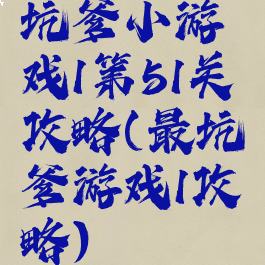 坑爹小游
戏1第51关
攻略(最坑
爹游戏1攻
略)